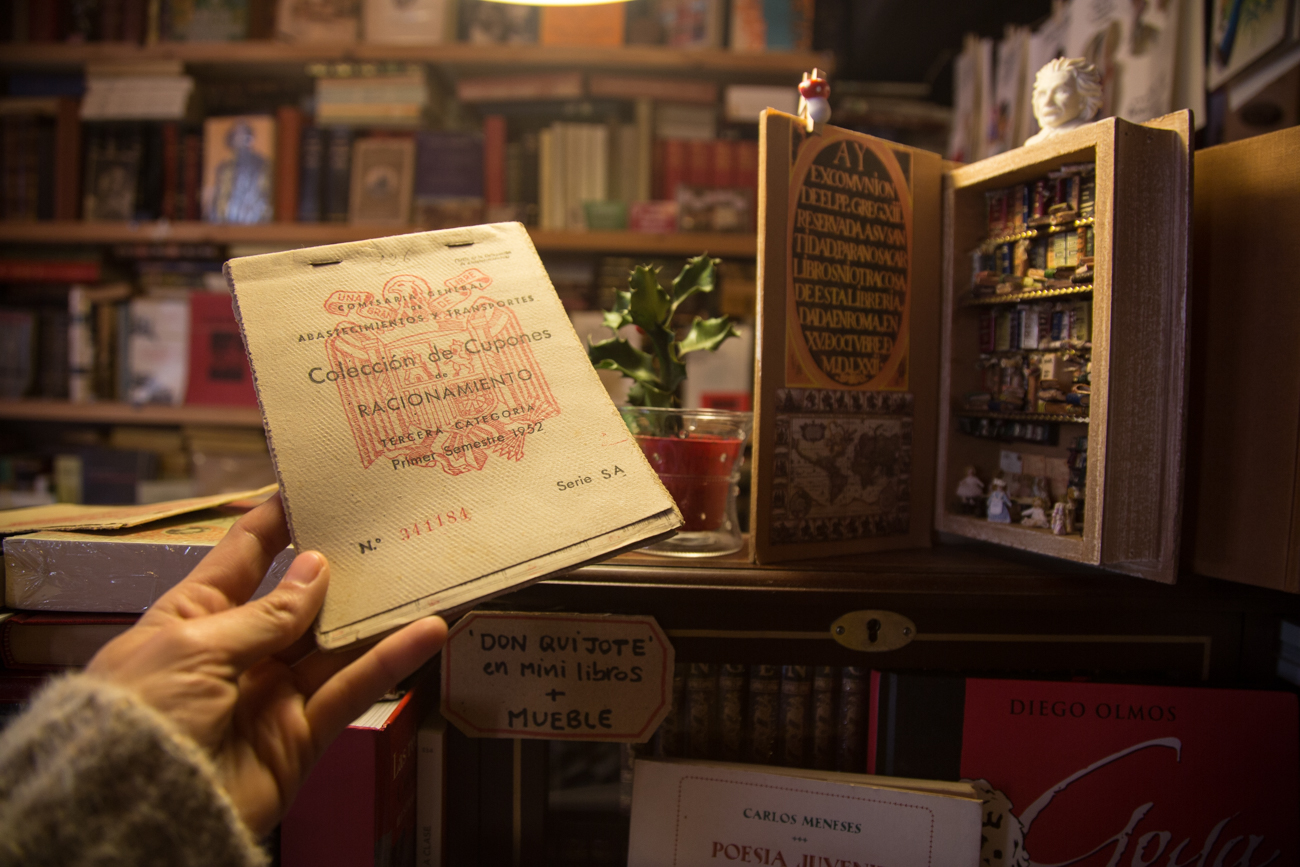 COMISARIA GENERAL
DE
ABASTECIMIENTOS Y TRANSPORTES
Colección de Cupones
de
RACIONAMIENTO
TERCERA CATEGORIA
Primer Semestre 1952
Serie SA
N.º 341184
UNA
AY
EXCOMVNION
DEL PP. GREG XIII
RESERVADA A SV SAN
TIDAD, PARA NO SACAR
LIBROS NI OTRA COSA
DE ESTA LIBRERIA
DADA EN ROMA, EN
XV DE OCTVBRE D
M.D.LXXII
'DON QUIJOTE'
en mini libros
+
MUEBLE
DIEGO OLMOS
Goya
CARLOS MENESES
POESIA